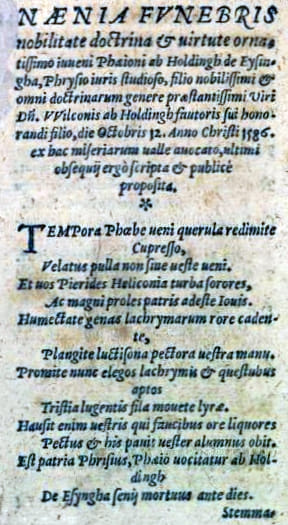 NÆNIA FVNEBRIS
nobilitate doctrina & uirtute orna⸗
tissimo iuueni Phaioni ab Holdingh de Eysin⸗
gha, Phrysio iuris studioso, filio nobilissimi &
omni doctrinarum genere præstantissimi Viri
Dñ. VVilconis ab Holdingh fautoris sui hono⸗
randi filio, die Octobris 12. Anno Christi 1586.
ex hac miseriarum ualle auocato, ultimi
obsequij ergò scripta & publicè
proposita.
*
TEMPora Phœbe ueni querula redimite
Cupresso,
Velatus pulla non sine ueste ueni.
Et uos Pierides Heliconia turba sorores,
Ac magni proles patris adeste Iouis.
Humectate genas lachrymarum rore caden⸗
te,
Plangite luctisona pectora uestra manu.
Promite nunc elegos lachrymis & questubus
aptos
Tristia lugentis fila mouete lyræ.
Hausit enim uestris qui faucibus ore liquores
Pectus & his pauit uester alumnus obit.
Est patria Phrisius, Phaio uocitatur ab Hol⸗
dingh
De Esyngha senij mortuus ante dies.
Stemma⸗